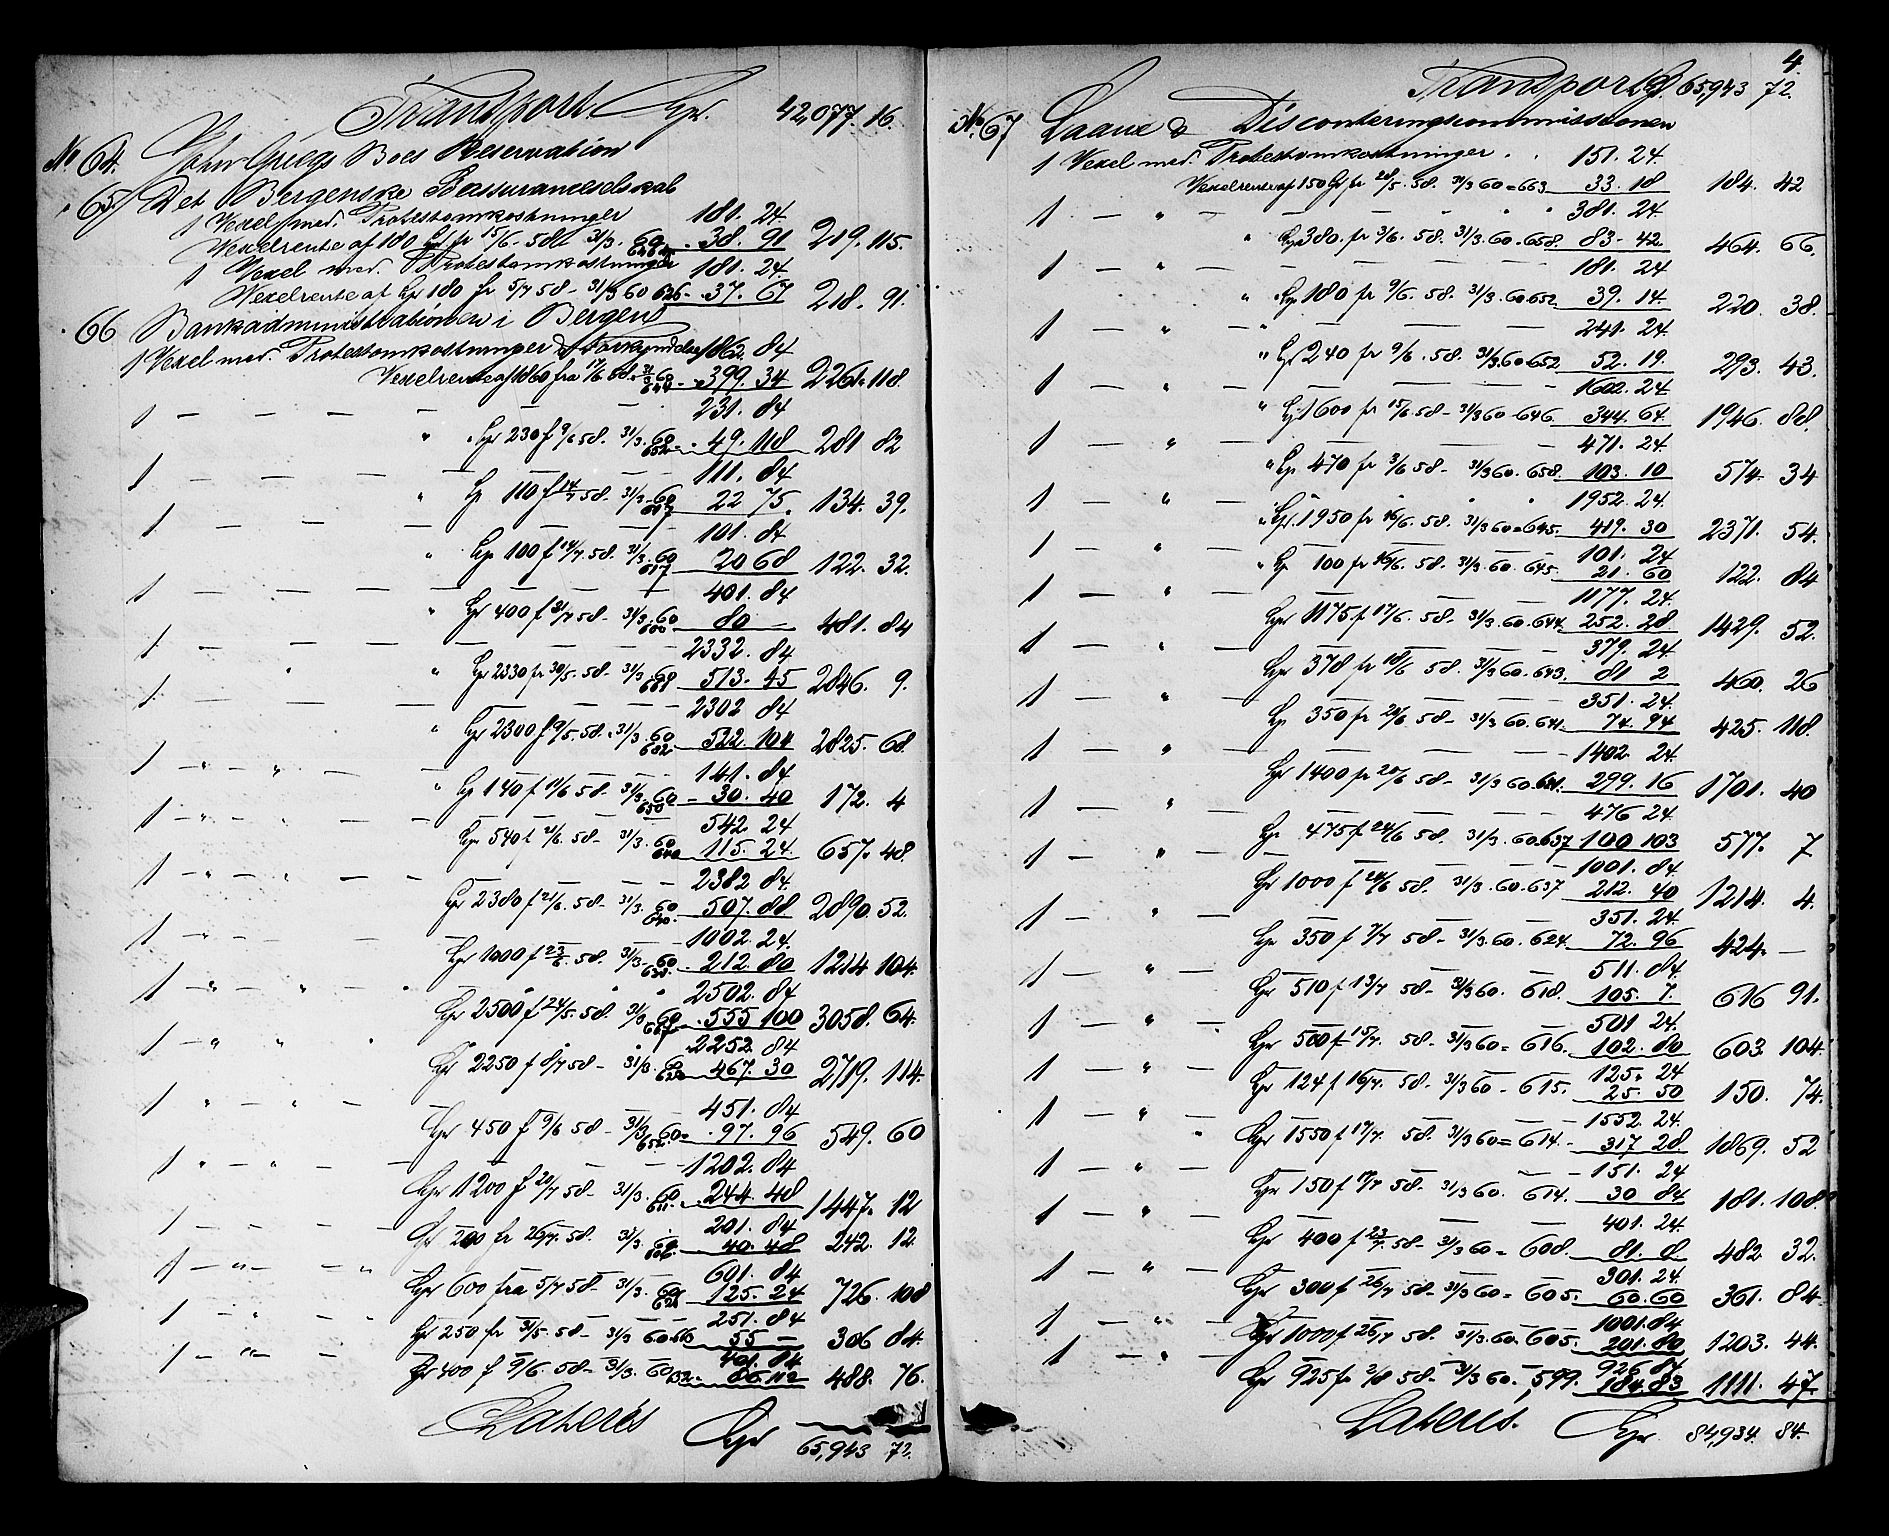 Transport Spr. 42,077. 16.
No 64. John Griegs Boes Reservation
" 65 Det Bergenske Assuranceselskab
1 Vexel med. Protestomkostninger 181. 24.
Vexelrente af 180 fr 15/6. 58 - 31/3. 60 38. 91 219. 115.
1 Vexel med. Protestomkostninger 181. 24.
Vexelrente af Spr 180 fr 5/7 58 - 31/3 60 626 - 37. 67 218. 91.
" 66 Bankadministrationen i Bergen
1 Vexel med. Protestomkostninger & Forkyndelse 1862. 84
Vexelrente af 1860 fra 17/6 58 - 31/3 60 644 - 399. 34 2261. 118.
1 — — — — — 231. 84
" Spr 230 f 9/6 58. 31/3. 60 652 - 49. 118 281 82
1 — — — — 111. 84
" Sp 110 f 14/7 58. 31/3. 60 617 22 75. 134. 39.
1 — — — — 101. 84
" Sp 100 f 14/7. 58. 31/3. 60 617 20 68 122. 32.
1 — — — — 401. 84
" Spr 400 f 31/7 58 - 31/3. 60 600 80 — 481. 84
1 — — — — 2332. 84
" Spr 2330 fr 30/5. 58 - 31/3. 60 661 513. 45 2846. 9.
1 — — — — 2302 84
" Spr 2300 f 9/5. 58. 31/3. 60 682 - 522. 104 2825. 68.
1 — " — " — — 141. 84
" Sp 140 f 11/6 58 - 31/3. 60 650 - 30. 40 172. 4
1 — " — " — — 542. 24
Spr 540 f 21/6. 58 - 31/3. 60 640 115. 24. 657. 48.
1 — " — " — — 2382 84.
Spr 2380 f 21/6. 58 - 31/3. 60 640. 507. 88 2890. 52.
1 — " — — 1002. 24.
Spr 1000 f 23/6. 58. 31/3. 60 638. 212. 80 1214 104.
1 — " — " " 2502. 84
Spr 2500 f 24/5. 58. 31/3 60 667 . 555 100 3058. 64.
1 — " " " 2252. 84
Spr 2250 f 8/7 58 - 31/3. 60 623 467. 30 2719. 114.
1 " — " — — 451. 84
Spr 450 f 9/6 58 - 31/3. 60 652. . 97. 96 549. 60
1 " — " — — 1202. 84
Spr 1200 f 20/7 58 - 31/3. 60 611. 244. 48 1447. 12
1 — " — — 201. 84
Spr 200 fr 26/7. 58. 31/3. 60 605. 40. 48 242. 12.
1 — " — — " 601. 84
Spr 600 fra 5/7 58 - 31/3. 60 626 125. 24 726. 108
1 — " — " 251. 84
Spr 250 fr 31/5. 58 - 31/3 60 660 55 — 306 84.
1 — " — — 401. 84
Spr 400 f 9/6. 58 - 31/3. 60 652. 86. 112 488. 76.
Lateris Spr 65,943 72.
4.
Transport Sp. 65,943 72.
No. 67 Laane & Disconteringscommissionen
1 Vexel med. Protestomkostninger . . 151. 24.
Vexelrente af 150 Sp fr 28/5. 58. 31/3 60 = 663 33. 18 184. 42
1 — " — — — " " 381. 24.
" Spr 380. fr 3/6. 58. 31/3. 60. 658. 83 - 42. 464. 66.
1 — " — — — — 181. 24
" Sp 180 fr 9/6. 58. 31/3. 60. 652. 39. 14. 220. 38.
1 — " — " — — 241. 24
" Sp 240 fr 9/6. 58. 31/3. 60. 652. 52. 19. 293. 43.
1 — " — — — — 1602. 24
" Sp 1600 fr 15/6 58 - 31/3 60 - 646. 344. 64. 1946. 88.
1 — " — — — — 471. 24.
" Sp. 470 fr 3/6 58 - 31/3 60. 658. 103. 10 574. 34
1 — " — " " " 1952. 24.
" Spr. 1950 fr 16/6. 58. 31/3 60 = 645. 419. 30 2371. 54.
1 — " — — — — 101. 24
" Sp 100 fr 16/6. 58. 31/3. 60. 645. 21. 60 122. 84
1 — " — — — — 1177. 24.
Spr 1175 f 17/6. 58. 31/3. 60. 644. 252. 28. 1429. 52.
1 — " — — — — 379. 24.
Spr 378 fr 18/6 58. 31/3. 60. 643. 81 2 460. 26
1 — " — — — — 351. 24.
Sp 350 fr 20/6 58 - 31/3 60. 641. 74. 94 425. 118.
1 — " — — — — 1402. 24.
Spr 1400 fr 20/6 58 - 31/3 60. 641. 299. 16 1701. 40
1 — " — — — — 476 24.
Sp 475 f 24/6 58. 31/3. 60. 637 100 103 577. 7
1 — " — — — — 1001. 84.
Spr 1000 f 24/6 58. 31/3. 60. 637 212. 40 1214. 4.
1 — " — — — — 351. 24.
Spr 350 f 7/7 58 - 31/3. 60. 624. 72. 96 424. —
1 — " — — — — 511. 84.
Spr 510 f 13/7 58 - 31/3 60. 618. 105. 7. 616 91.
1 — " — — — — 501 24.
Spr 500 f 15/7. 58 - 31/3 60 = 616. 102. 80 603. 104.
1 — " — — — — 125. 24
Spr 124 f 16/7. 58 - 31/3 60 - 615. 25. 50 150. 74.
1 — " — — — — 1552. 24.
Spr 1550 f 17/7. 58. 31/3 60 = 614. 317 28 1869. 52
1 — " — — — — 151. 24
Spr 150 f 17/7 58 - 31/3 60. 614. 30 84 181. 108.
1 — " — — — — 401. 24.
Spr 400 f 23/7. 58 - 31/3 60 = 608. 81. 8. 482. 32.
1 — " — — — — 301. 24.
Spr 300 f 26/7 58 - 31/3 60 = 605. 60. 60 361. 84.
1 — " — — — — 1001. 84
Spr 1000 f 26/7 58. 31/3. 60. 605. 201. 80 1203. 44.
1 — " — — — — 926 87
Spr 925 fr 2/8 58 - 31/3 60. 599. 184. 83 1111. 47.
Lateris. Spr 84,934. 84.